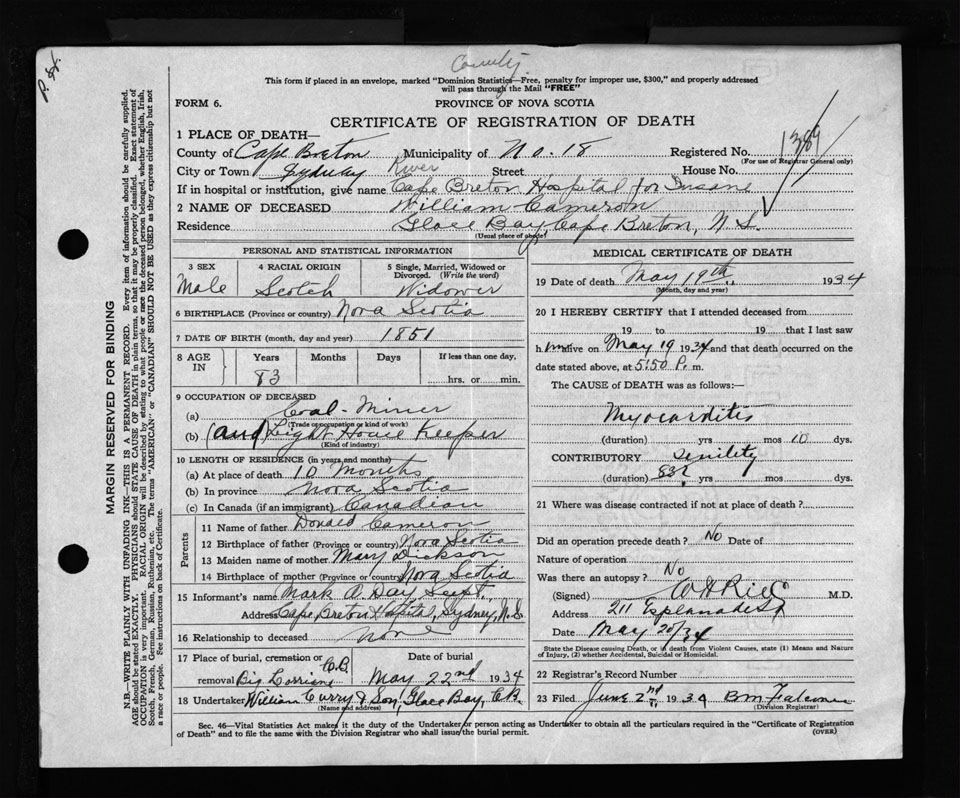 P. H.
County
This form if placed in an envelope, marked "Dominion Statistics—Free, penalty for improper use, $300," and properly addressed
will pass through the Mail "FREE"
FORM 6. PROVINCE OF NOVA SCOTIA
CERTIFICATE OF REGISTRATION OF DEATH
1 PLACE OF DEATH—
County of Cape Breton Municipality of No. 18 Registered No. 1389
(For use of Registrar General only)
City or Town Sydney River Street House No.
If in hospital or institution, give name Cape Breton Hospital for Insane
2 NAME OF DECEASED William Cameron
Residence Glace Bay Cape Breton, N.S.
(Usual place of abode)
PERSONAL AND STATISTICAL INFORMATION
3 SEX 4 RACIAL ORIGIN 5 Single, Married, Widowed or Divorced. (Write the word)
Male Scotch Widower
6 BIRTHPLACE (Province or country) Nova Scotia
7 DATE OF BIRTH (month, day and year) 1851
8 AGE IN Years Months Days If less than one day,
83 hrs. or min.
9 OCCUPATION OF DECEASED
(a) Coal-Miner
(Trade occupation or kind of work)
(b) (and) Light House Keeper
(Kind of industry)
10 LENGTH OF RESIDENCE (in years and months)
(a) At place of death 10 Months
(b) In province Nova Scotia
(c) In Canada (if an immigrant) Canadian
Parents
11 Name of father Donald Cameron
12 Birthplace of father (Province or country) Nova Scotia
13 Maiden name of mother Mary Dickson
14 Birthplace of mother (Province or country) Nova Scotia
15 Informant's name Mark A. Day Supt.
Address Cape Breton Hospital, Sydney, N.S.
16 Relationship to deceased none
17 Place of burial, cremation or removal Big Lorraine C.B. Date of burial May 22nd 1934
18 Undertaker William Curry & Son, Glace Bay, C.B.
(Name and address)
MEDICAL CERTIFICATE OF DEATH
19 Date of death May 19th 1934
(Month, day and year)
20 I HEREBY CERTIFY that I attended deceased from
19 to 19 that I last saw
him alive on May 19 1934 and that death occurred on the
date stated above, at 5:50 P. m.
The CAUSE of DEATH was as follows:
Myocarditis
(duration) yrs mos 10 dys.
CONTRIBUTORY Senility
(duration) 83? yrs mos dys.
21 Where was disease contracted if not at place of death?
Did an operation precede death? No Date of
Nature of operation
Was there an autopsy? No
(Signed) M.D.
Address 211 Esplanade St
Date May 20/34
State the Disease causing Death, or in death from Violent Causes, state (1) Means and Nature of Injury, (2) whether Accidental, Suicidal or Homicidal.
22 Registrar's Record Number
23 Filed June 2nd 1934
(Division Registrar)
Sec. 46—Vital Statistics Act makes it the duty of the Undertaker or person acting as Undertaker to obtain all the particulars required in the "Certificate of Registration
of Death" and to file the same with the Division Registrar who shall issue the burial permit. (OVER)
MARGIN RESERVED FOR BINDING
N.B.—WRITE PLAINLY WITH UNFADING INK—THIS IS A PERMANENT RECORD. Every item of information should be carefully supplied.
AGE should be stated EXACTLY. PHYSICIANS should STATE CAUSE OF DEATH in plain terms, so that it may be properly classified. Exact statement of
OCCUPATION is very important. RACIAL ORIGIN will be described by stating to what people or race the deceased person belonged, whether English, Irish,
Scotch, French, German, Russian, Ruthenian, etc. The terms "AMERICAN" or "CANADIAN" SHOULD NOT BE USED as they express citizenship but not
a race or people. See instructions on back of Certificate.